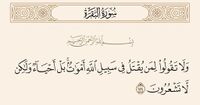 سُورَةُ البَقَرَةِ
بِسْمِ اللَّهِ الرَّحْمَٰنِ الرَّحِيمِ
وَلَا تَقُولُوا۟ لِمَن يُقْتَلُ فِى سَبِيلِ ٱللَّهِ أَمْوَٰتٌۢ بَلْ أَحْيَآءٌ وَلَٰكِن
لَّا تَشْعُرُونَ ١٥٤